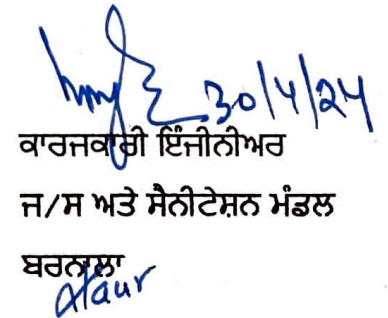 30/4/24
ਕਾਰਜਕਾਰੀ ਇੰਜੀਨੀਅਰ
ਜ/ਸ ਅਤੇ ਸੈਨੀਟੇਸ਼ਨ ਮੰਡਲ
ਬਰਨਾਲਾ